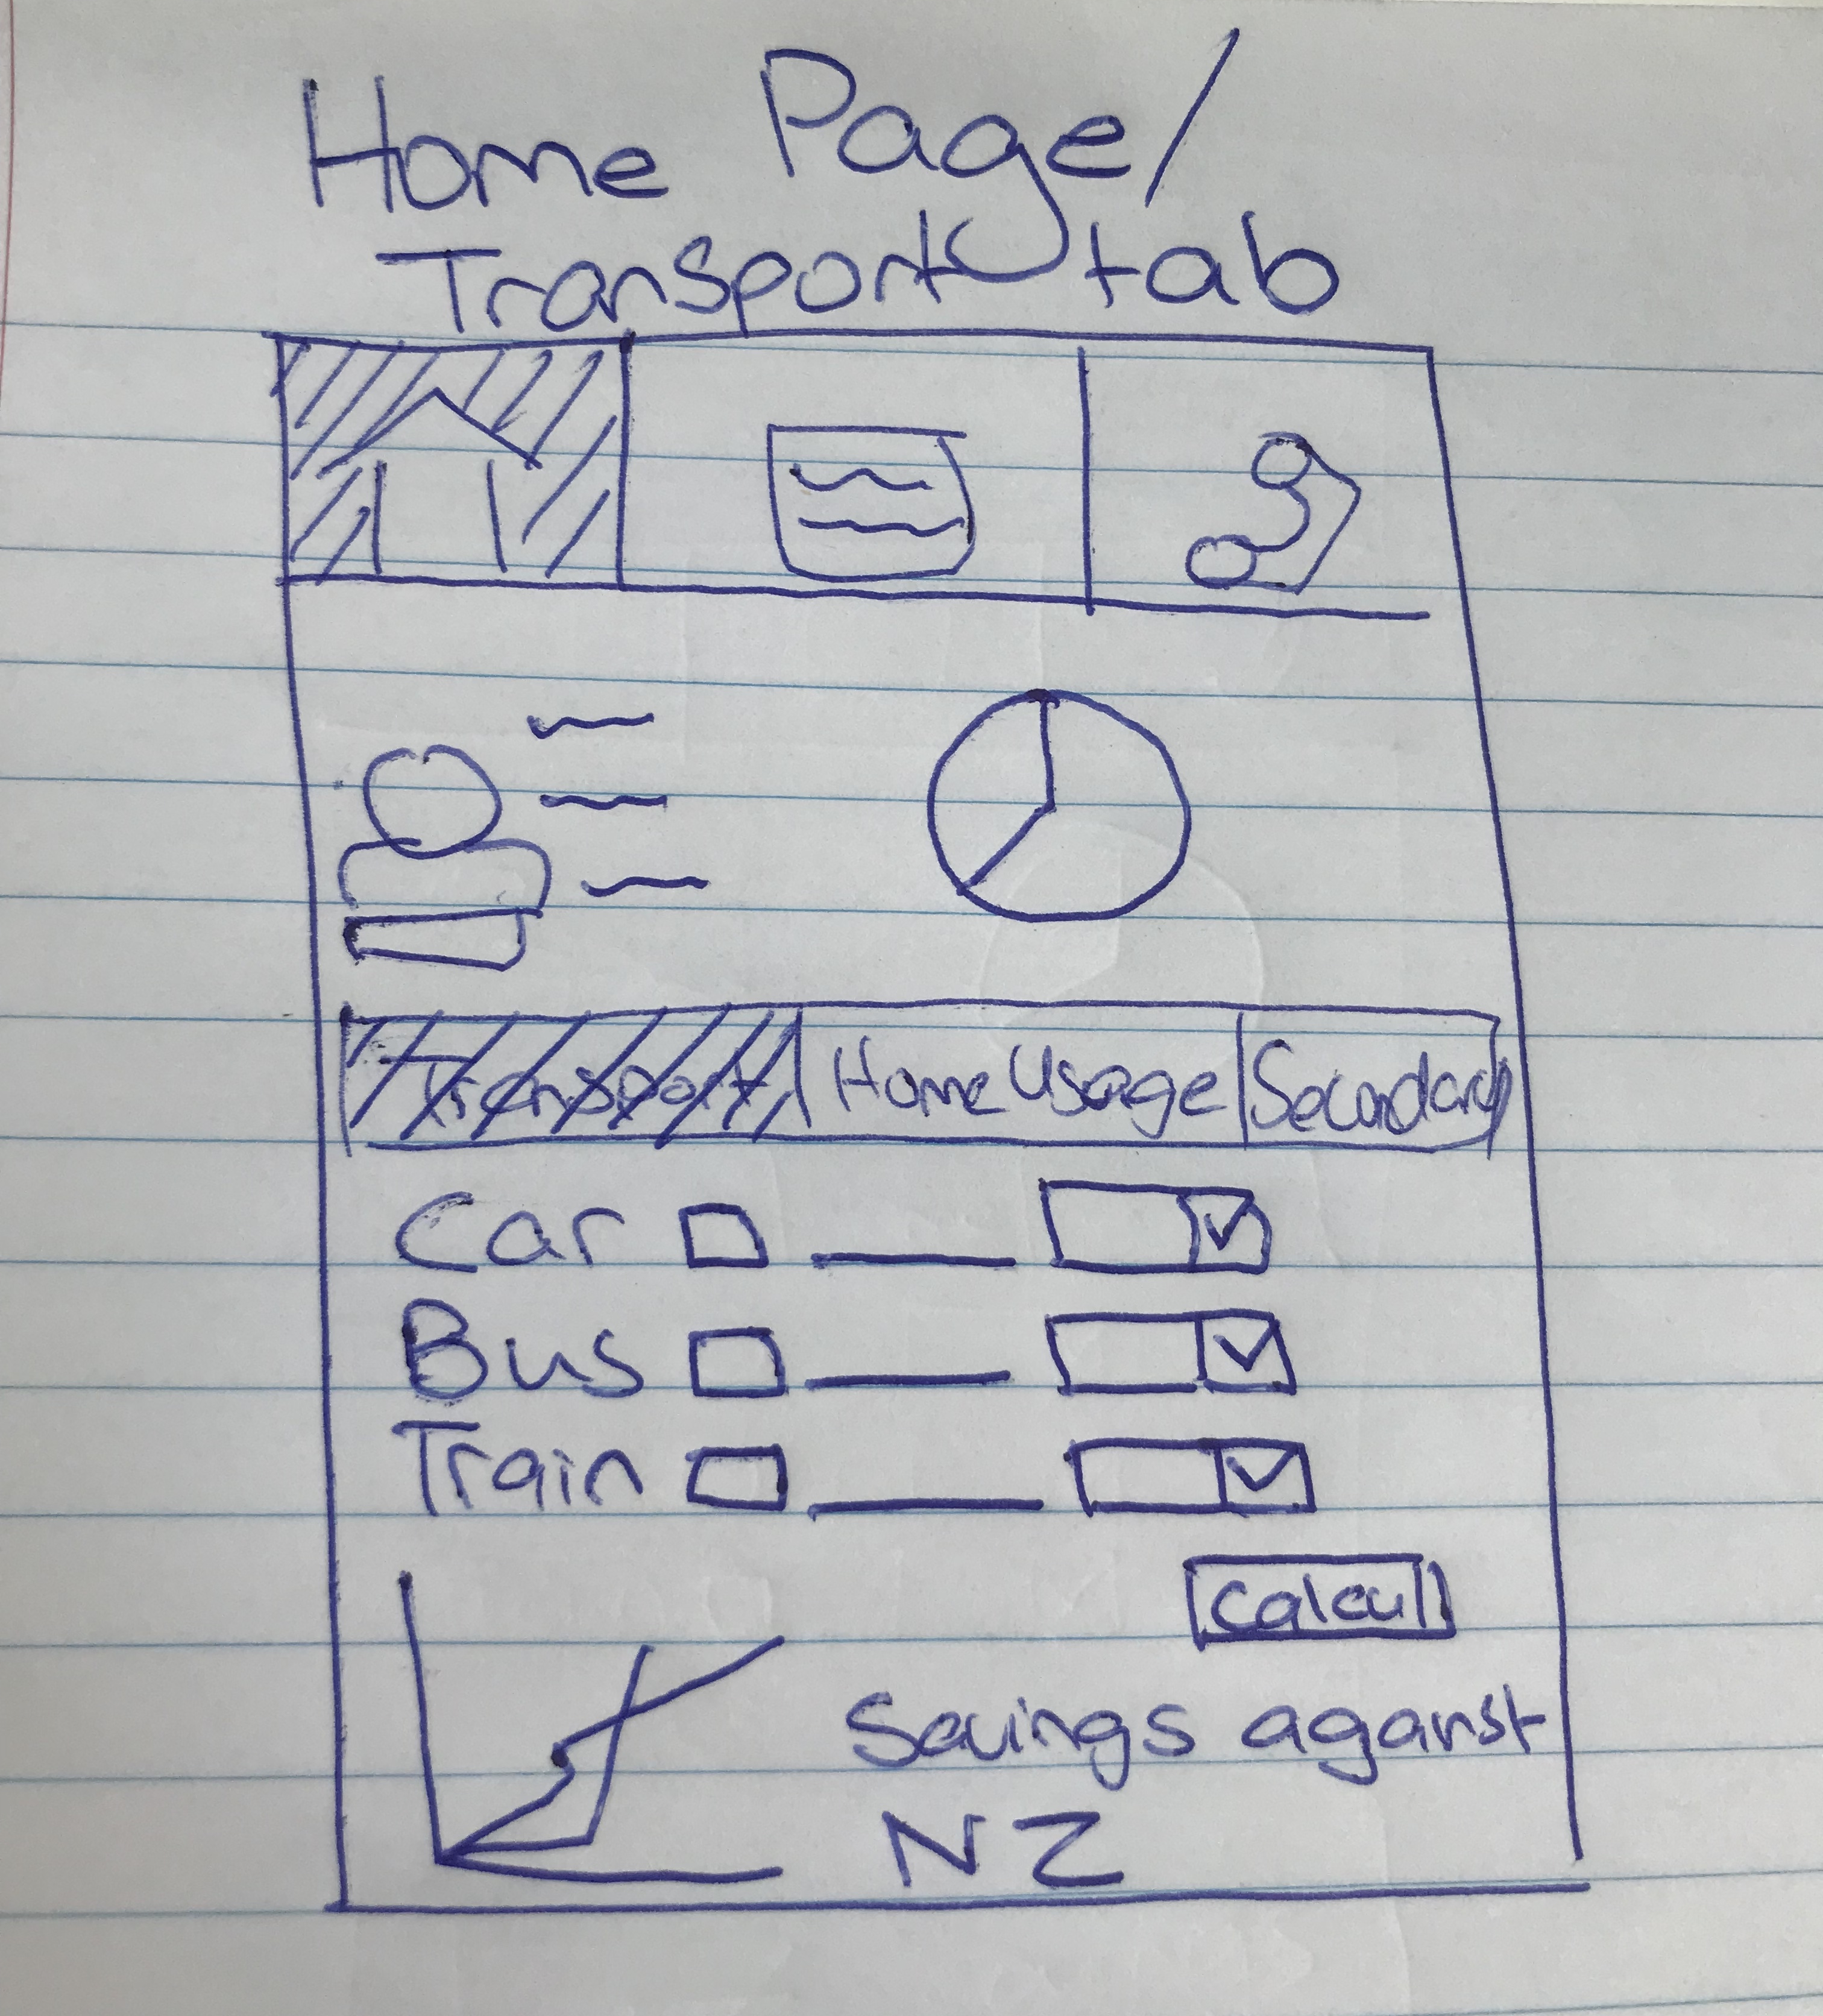 Home Page/
Transport tab
Transport
Home Usage
Secondary
Car
Bus
Train
Calcul
Savings against
NZ